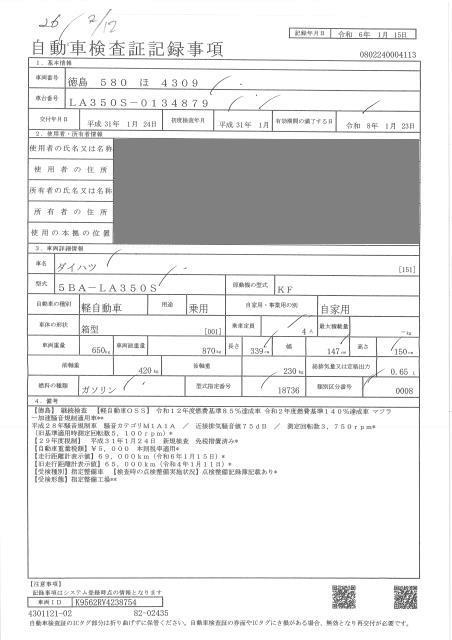 26 2/12
自動車検査証記録事項
記録年月日 令和 6年 1月 15日
0802240004113
1．基本情報
車両番号 徳島 580 ほ 4309
車台番号 LA350S-0134879
交付年月日 平成 31年 1月 24日 初度検査年月 平成 31年 1月 有効期間の満了する日 令和 8年 1月 23日
2．使用者・所有者情報
使用者の氏名又は名称
使用者の住所
所有者の氏名又は名称
所有者の住所
使用の本拠の位置
3．車両詳細情報
車名 ダイハツ [151]
型式 5BA-LA350S 原動機の型式 KF
自動車の種別 軽自動車 用途 乗用 自家用・事業用の別 自家用
車体の形状 箱型 [001] 乗車定員 4人 最大積載量 -kg
車両重量 650kg 車両総重量 870kg 長さ 339cm 幅 147cm 高さ 150cm
前軸重 420kg 後軸重 230kg 総排気量又は定格出力 0.65 L
燃料の種類 ガソリン 型式指定番号 18736 類別区分番号 0008
4．備考
【徳島】 継続検査 【軽自動車OSS】 令和12年度燃費基準85%達成車 令和2年度燃費基準140%達成車 マフラ
ー加速騒音規制適用車**
平成28年騒音規制車 騒音カテゴリM1A1A ／ 近接排気騒音値75dB ／ 測定回転数3,750rpm*
(旧基準適用時測定回転数5,100rpm)*
【29年度税制】 平成31年1月24日 新規検査 免税措置済み*
【自動車重量税額】¥5,000 本則税率適用*
【走行距離計表示値】69,000km (令和6年1月15日)*
(旧走行距離計表示値) 65,000km (令和4年1月11日)*
【受検種別】指定整備車 【検査時の点検整備実施状況】点検整備記録簿記載あり*
【受検形態】指定整備工場**
【注意事項】
記録事項はシステム登録時点の情報となります
車両ID K9562RV4238754
4301121-02 82-02435
自動車検査証のICタグ部分は折り曲げずに保管ください。自動車検査証の券面やICタグにき損がある場合、無効となり再交付が必要です。